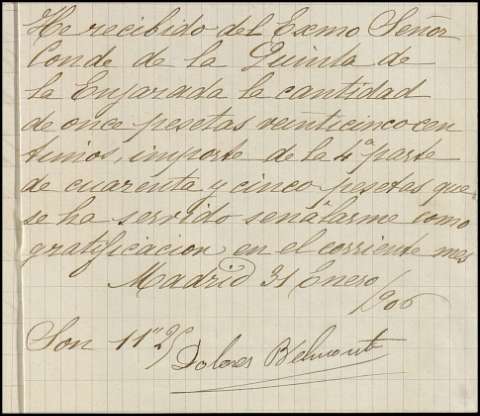 He recibido del Exmo Señor
Conde de la Quinta de
la Enjarada la cantidad
de once pesetas veinticinco cen
timos, importe de la 4ª parte
de cuarenta y cinco pesetas que
se ha servido señalarme como
gratificacion en el corriente mes
Madrid 31 Enero
1906
Son 11"25
Dolores Belmonte